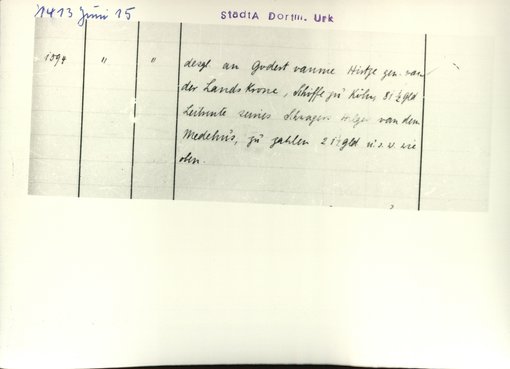 1413 Juni 15
StadtA Dortm. Urk
1894 " "
desgl. an Godert vanme Hirtze gen. van
der Landskrone, Schöffe zu Köln, 81 1/2 gld
Leibrente seines Schwagers van dem
Medehus, zu zahlen gld u.s.w. wie
oben.